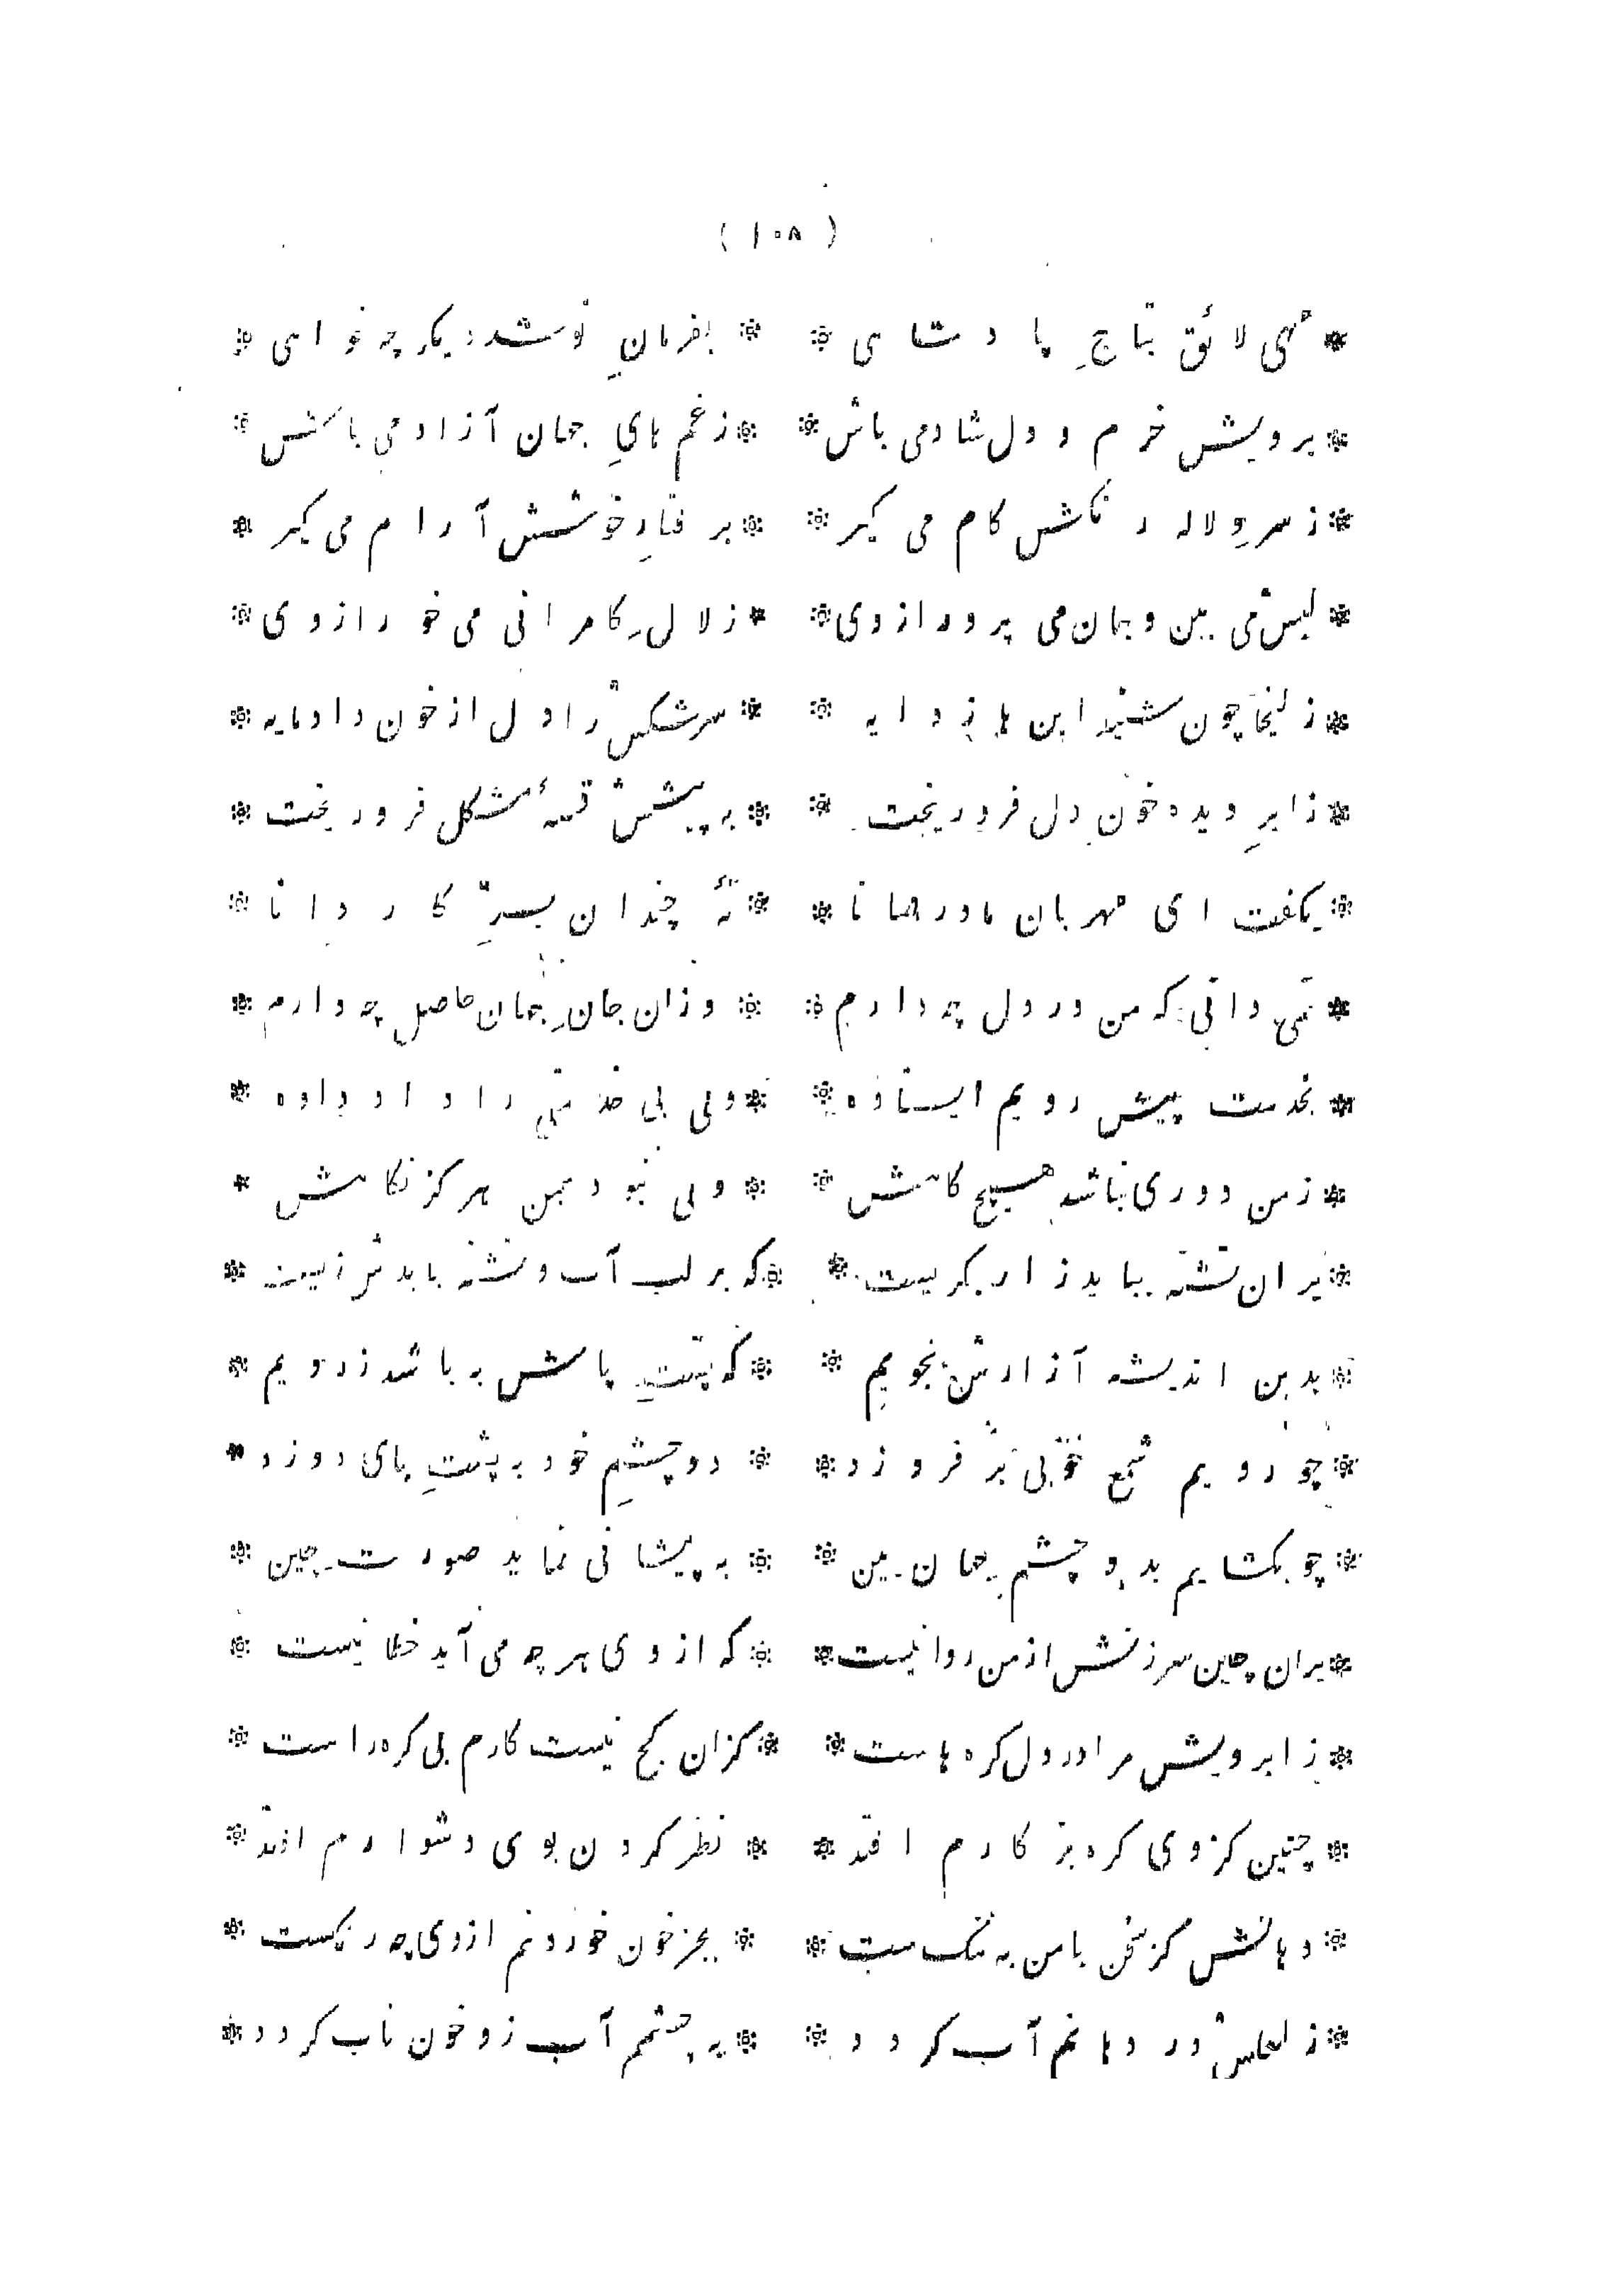 ( ١٠٨ )
* مهی لائق بتاجِ پادشاهی * بفرمانِ تو شد دیکر چه خواهی *
* برویش خرم و دل شاد می باش * ز غم های جهان آزاد می باش *
* ز سرو لاله رنکش کام می کیر * بر فتارِ خوشش آرام می کیر *
* لبش می بین و جان می پرور از وی * زلالِ کامرانی می خور از وی *
* زلیخا چون شنید این ها ز دایه * سرشکش را دل از خون داد مایه *
* ز ابرِ دیده خونِ دل فرو ریخت * به پیشش قصهٔ مشکل فرو ریخت *
* بکفت ای مهربان مادر همانا * نهٔ چندان بسرِّ کار دانا *
* نمی دانی که من در دل چه دارم * وزان جانِ جهان حاصل چه دارم *
* بخدمت پیش رویم ایستاده * ولی بی خدمتی را داد داده *
* ز من دوری نباشد هیچ کاهش * ولی نبود بمن هرکز نکاهش *
* بران تشنه بباید زار بکریست * که بر لب آب و تشنه بایدش زیست *
* بدین اندیشه آزارش نجویم * که پشتِ پاش به باشد ز رویم *
* چو رویم شمعِ خوبی بر فروزد * دو چشمِ خود به پشتِ پای دوزد *
* چو بکشایم بدو چشمِ جهان بین * به پیشانی نماید صورتِ چین *
* بران چین سرزنش از من روا نیست * که از وی هر چه می آید خطا نیست *
* ز ابرویش مرا در دل کره هاست * کزان کج نیست کارم بی کره راست *
* چنین کز وی کره بر کارم افتد * نظر کردن بوی دشوارم افتد *
* دهانش کز سخن با من به تنک ست * بجز خون خوردنم از وی چه رنکست *
* ز لعلش در دهانم آب کردد * به چشمم آب زو خون ناب کردد *